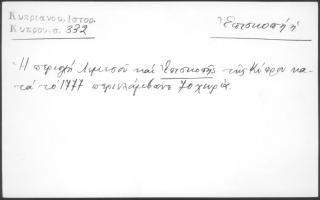 Κυπριανού, Ιστορ.
Κύπρου, σ. 332
Ἐπισκοπή, ἡ
Ἡ περιοχὴ Λιμεσοῦ καὶ Ἐπισκοπῆς τῆς Κύπρου κα-
τὰ τὸ 1777 περιελάμβανε 70 χωρία.